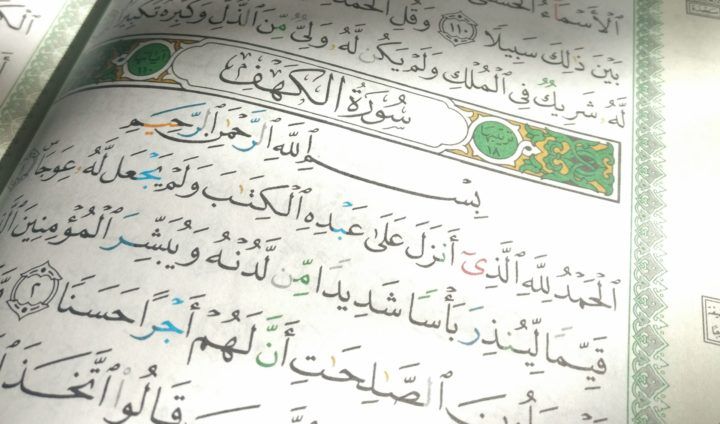 ٱلْأَسْمَآءُ ٱلْحُسْنَىٰ
بَيْنَ ذَٰلِكَ سَبِيلًا ١١٠ وَقُلِ ٱلْحَمْدُ
لَّهُۥ شَرِيكٌ فِى ٱلْمُلْكِ وَلَمْ يَكُن لَّهُۥ وَلِىٌّ مِّنَ ٱلذُّلِّ وَكَبِّرْهُ تَكْبِيرًۢا
سُورَةُ الكَهْفِ
١٨
بِسْمِ ٱللَّهِ ٱلرَّحْمَٰنِ ٱلرَّحِيمِ
ٱلْحَمْدُ لِلَّهِ ٱلَّذِىٓ أَنزَلَ عَلَىٰ عَبْدِهِ ٱلْكِتَٰبَ وَلَمْ يَجْعَل لَّهُۥ عِوَجَاۜ
قَيِّمًا لِّيُنذِرَ بَأْسًا شَدِيدًا مِّن لَّدُنْهُ وَيُبَشِّرَ ٱلْمُؤْمِنِينَ
ٱلصَّٰلِحَٰتِ أَنَّ لَهُمْ أَجْرًا حَسَنًا ٢
قَالُوا۟ ٱتَّخَذَ